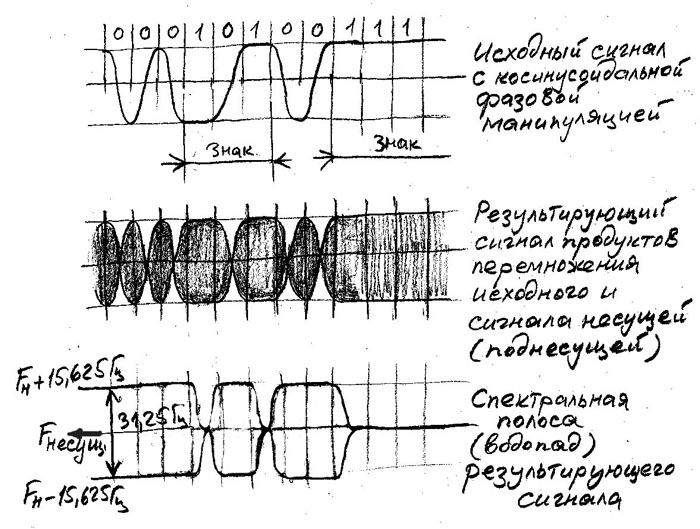 0 0 0 1 0 1 0 0 1 1 1
Исходный сигнал
с косинусоидальной
фазовой
манипуляцией
Знак
Знак
Результирующий
сигнал продуктов
перемножения
исходного и
сигнала несущей
(поднесущей)
Fн+15,625Гц
31,25Гц
Fнесущ.
Fн-15,625Гц
Спектральная
полоса
(водопад)
результирующего
сигнала